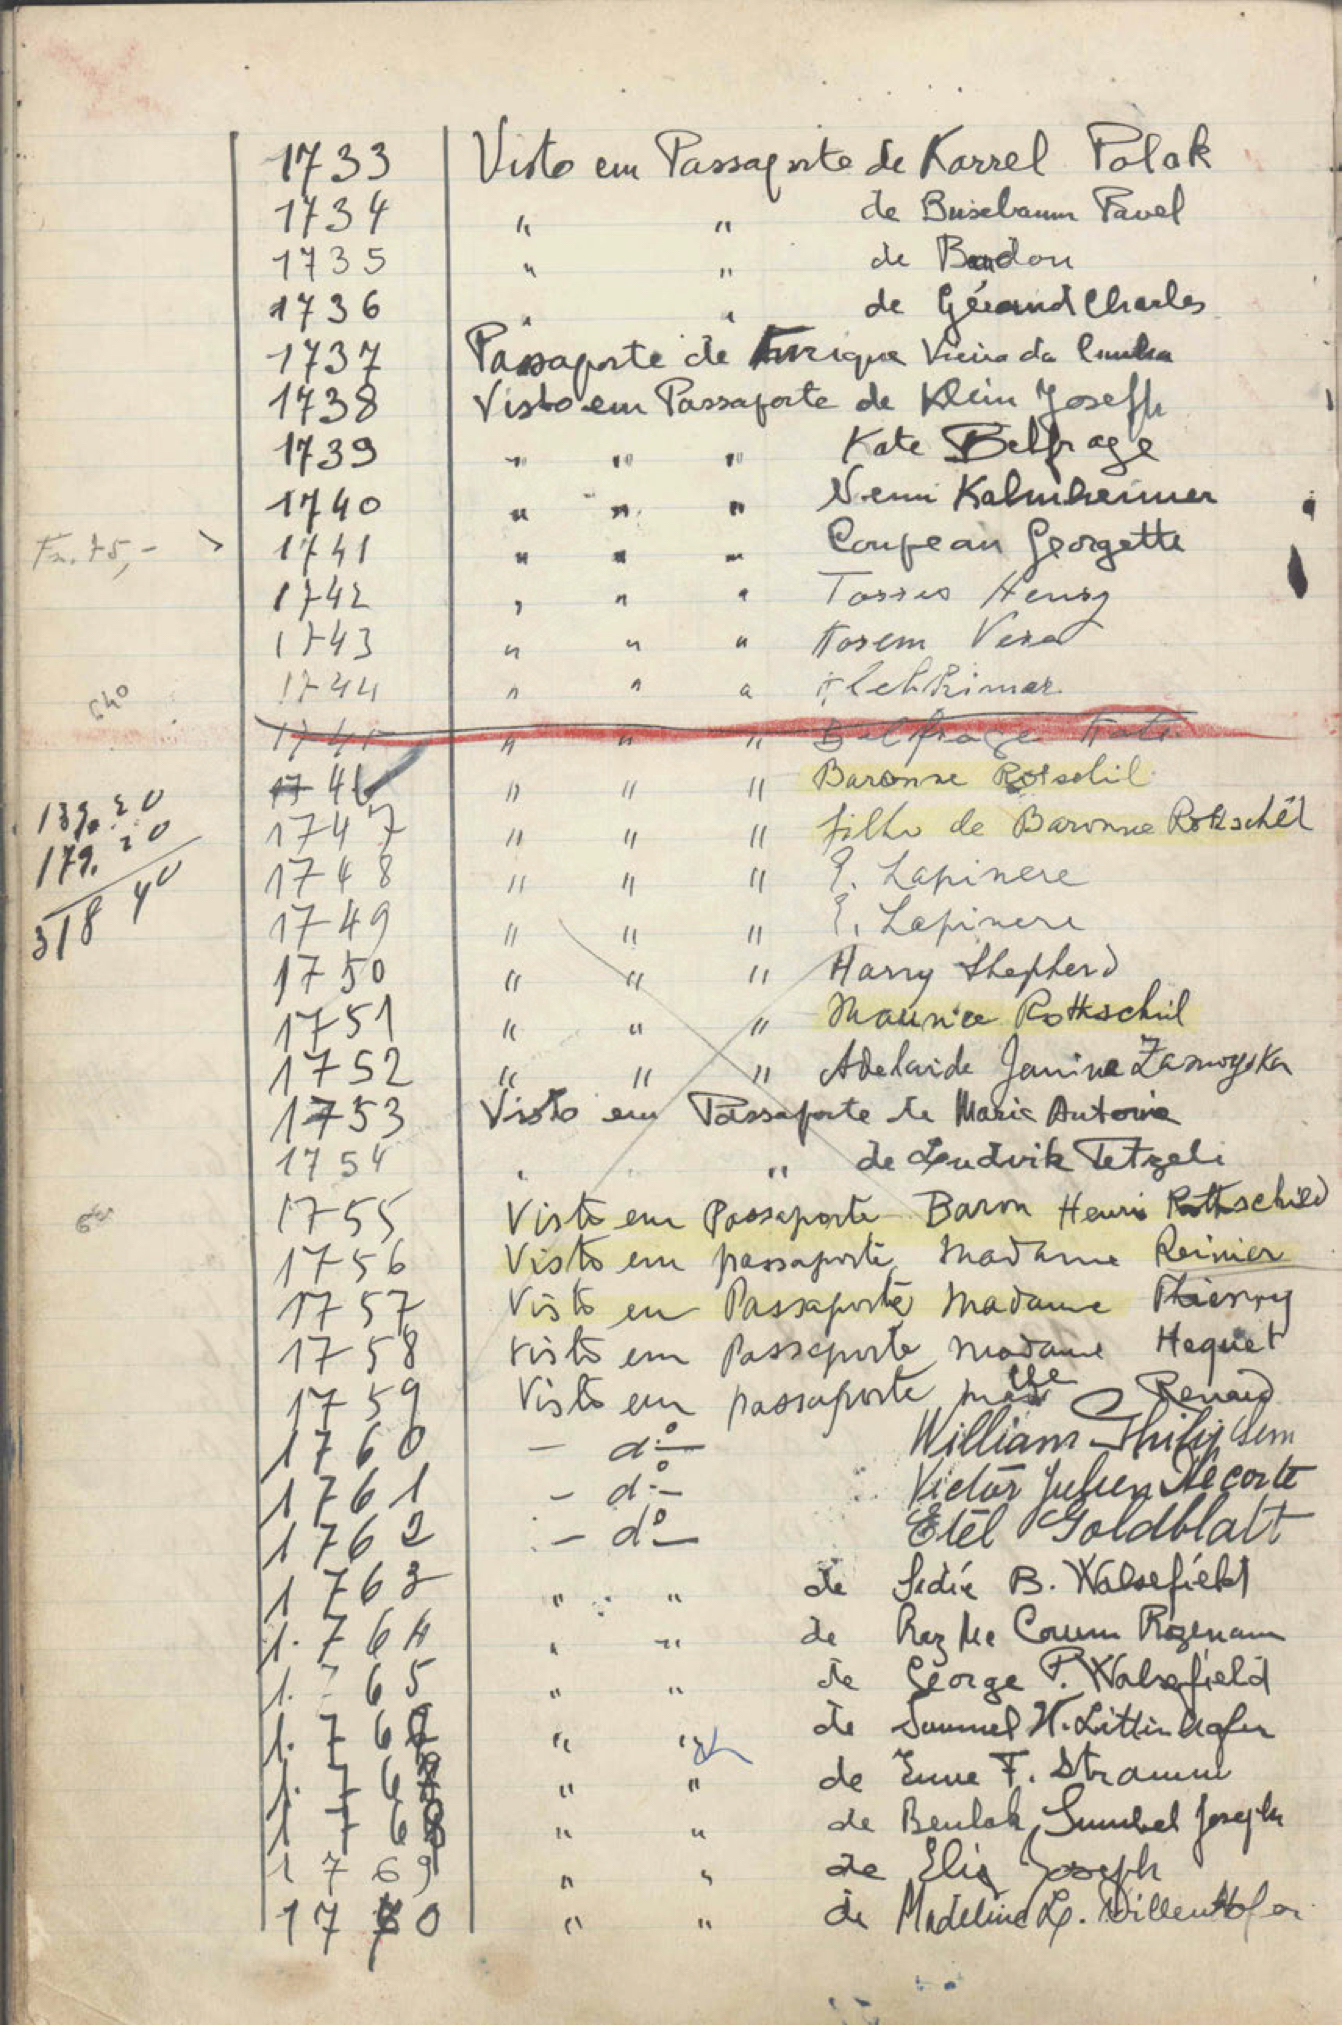 1733 Visto em Passaporte de Karrel Polak
1734 " " de Buisebaum Pavel
1735 " " de
1736 " " de Gérand Charles
1737 Passaporte de Enrique Vieira da Cunha
1738 Visto em Passaporte de Klein Joseph
1739 " " " Kate Belfrage
1740 " " " Kalmheimer
Fr. 75,- > 1741 " " " Coupeau Georgette
1742 " " " Tasses Henry
1743 " " " Vera
1744 " " "
640
1745 " " " Belfrage Kate
1746 " " " Baronne Rotschil
139.20 1747 " " " filho de Baronne Rottschil
179.20 1748 " " " E. Lapinere
318 40 1749 " " " E. Lapinere
1750 " " " Harry Shepherd
1751 " " " Maurice Rottschil
1752 " " " Adelaide Janine Zamoyska
1753 Visto em Passaporte de Marie Antoine
1754 " " de Ludvik Tetzeli
1755 Visto em Passaporte Baron Henri Rothschild
1756 Visto em passaporte Madame Reinier
1757 Visto em Passaporte Madame Thierry
1758 Visto em Passaporte Madame Hequet
1759 Visto em passaporte Renard
1760 - do - William
1761 - do - Victor Julien Decorte
1762 - do - Etel Goldblatt
1763 " " de B. Walsefield
1764 " " de
1765 " " de George P. Walsefield
1.766 " " de Samuel
1.767 " " de F. Stramm
1768 " " de Beulah Joseph
1769 " " de Elia Joseph
1770 " " de Madeline L.